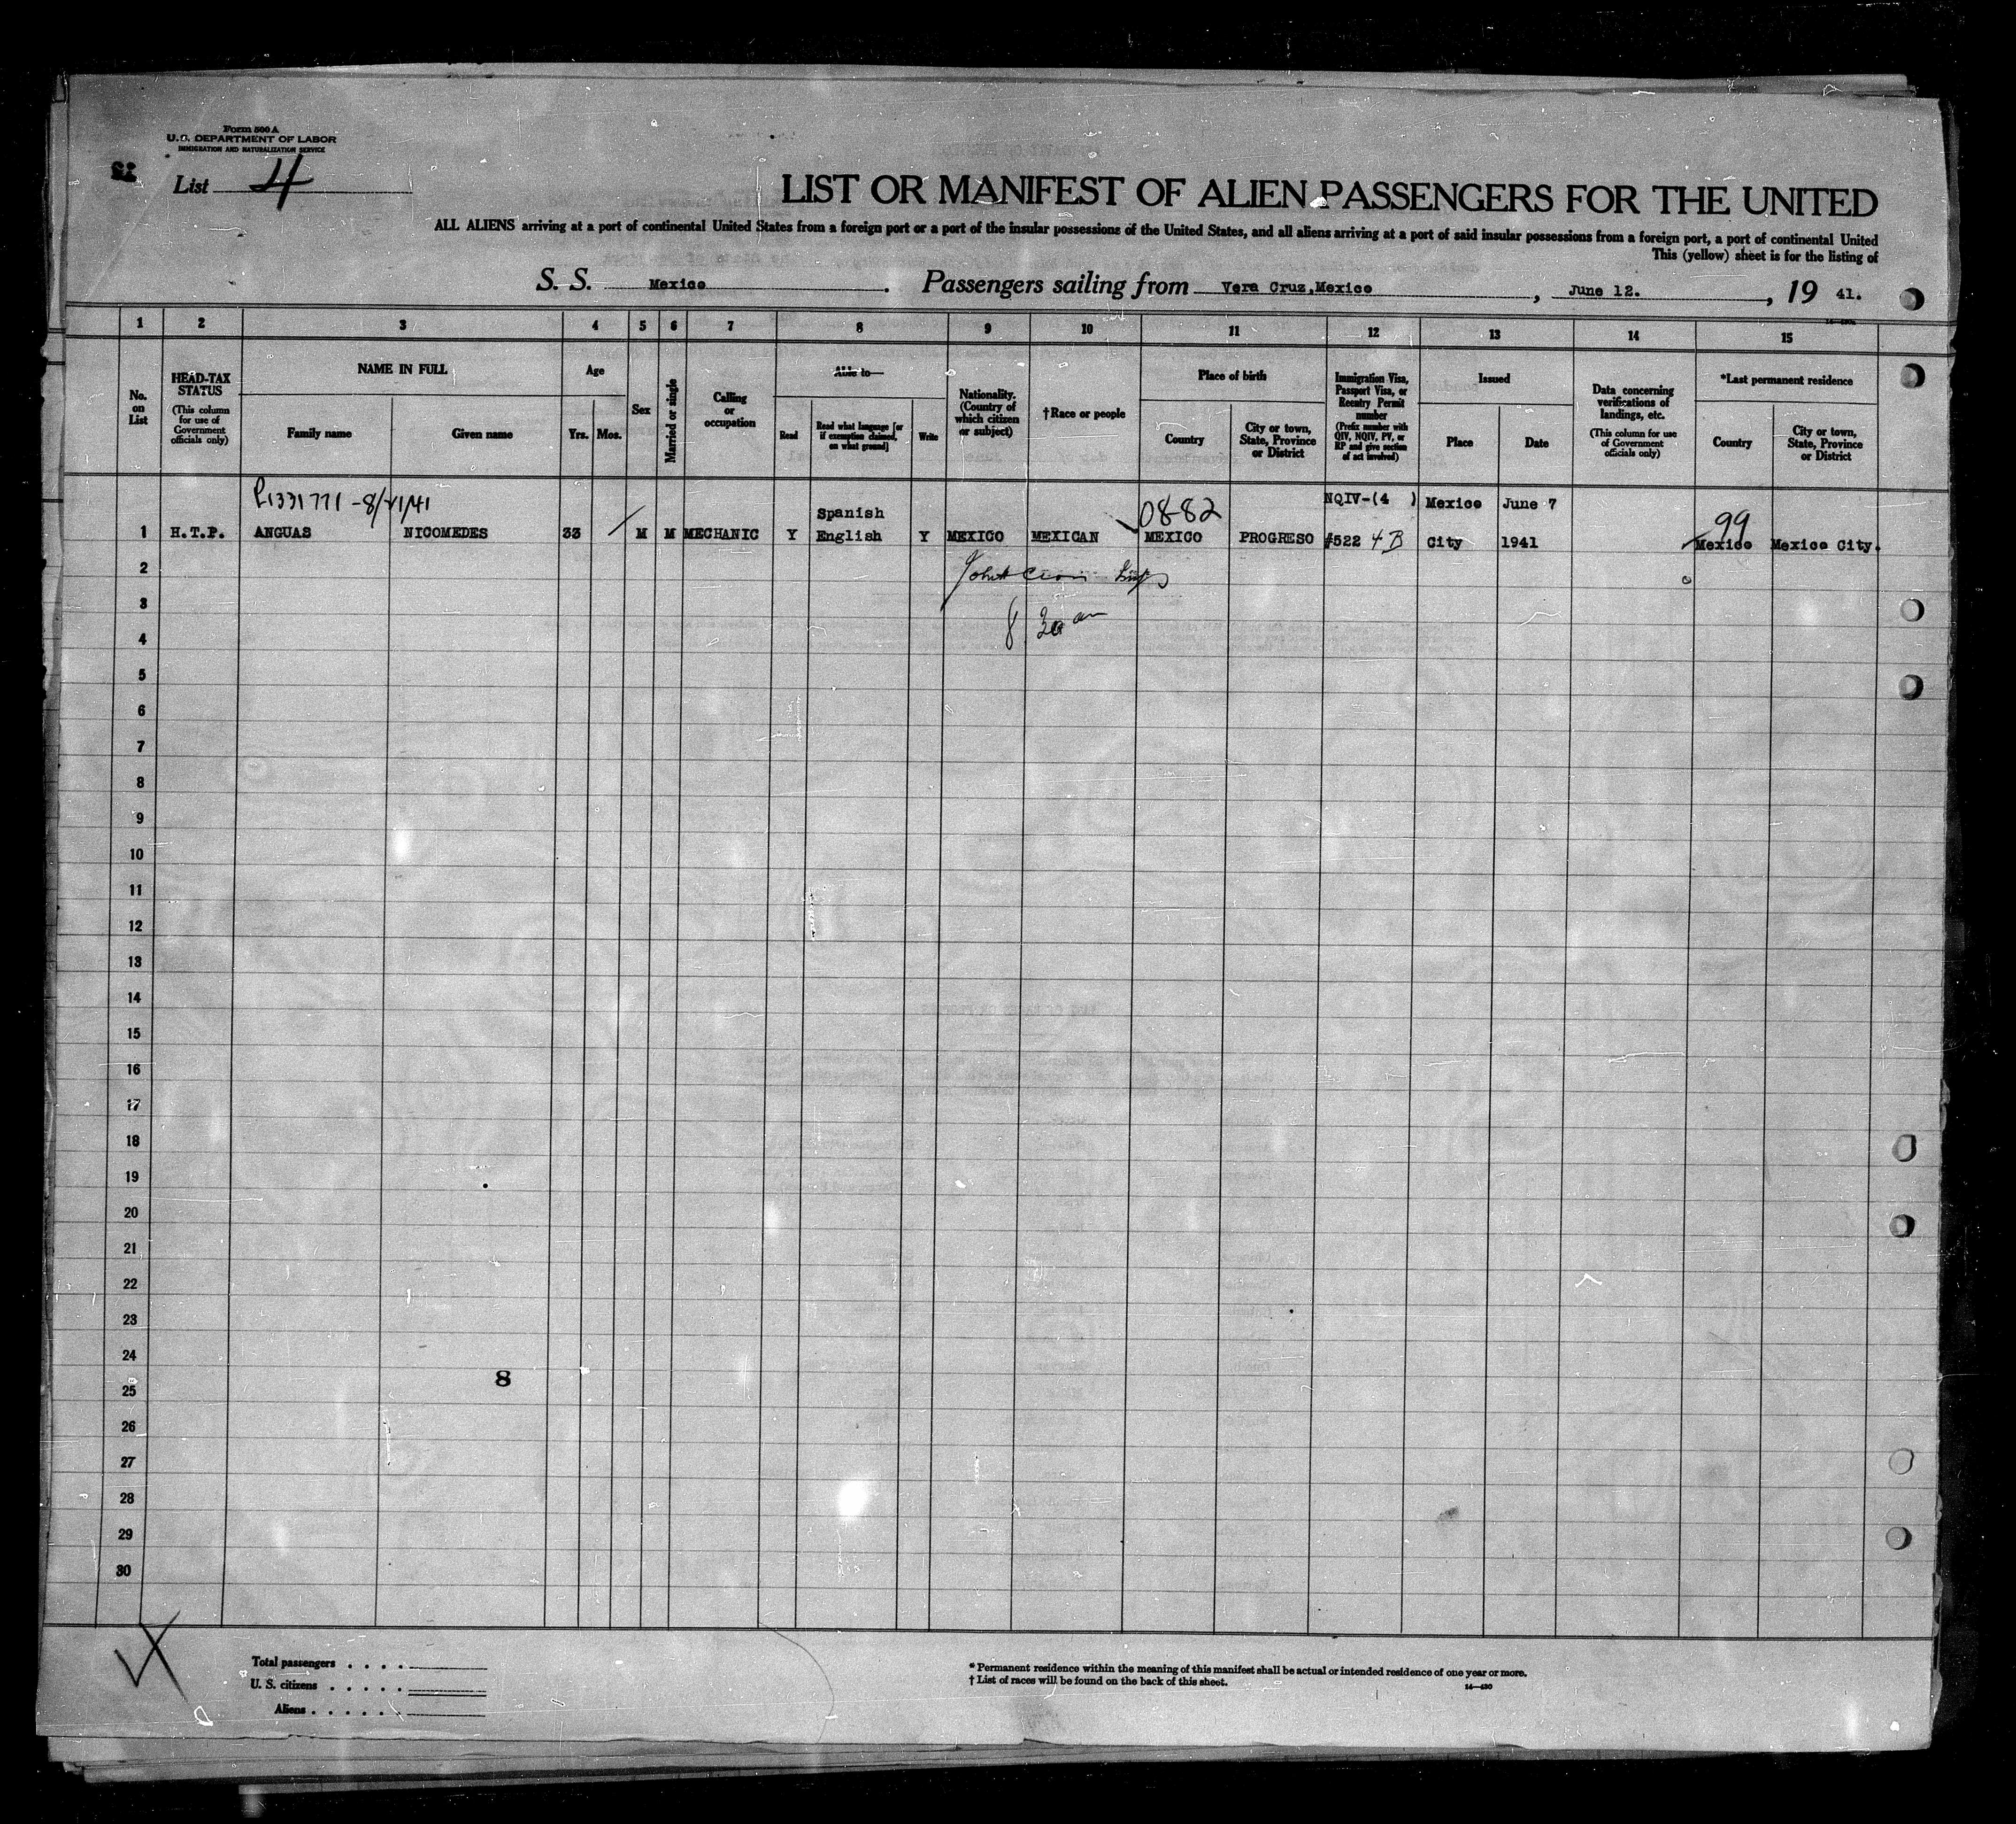 Form 500 A
U. S. DEPARTMENT OF LABOR
IMMIGRATION AND NATURALIZATION SERVICE
List 4
LIST OR MANIFEST OF ALIEN PASSENGERS FOR THE UNITED
ALL ALIENS arriving at a port of continental United States from a foreign port or a port of the insular possessions of the United States, and all aliens arriving at a port of said insular possessions from a foreign port, a port of continental United
This (yellow) sheet is for the listing of
S. S. Mexico. Passengers sailing from Vera Cruz, Mexico, June 12., 19 41.
1 2 3 4 5 6 7 8 9 10 11 12 13 14 15
No. on List
HEAD-TAX STATUS
(This column for use of Government officials only)
NAME IN FULL
Family name
Given name
Age
Yrs. Mos.
Sex
Married or single
Calling or occupation
Able to—
Read
Read what language [or if exemption claimed, on what ground]
Write
Nationality. (Country of which citizen or subject)
†Race or people
Place of birth
Country
City or town, State, Province or District
Immigration Visa, Passport Visa, or Reentry Permit number
(Prefix number with QIV, NQIV, PV, or RP and give section of act involved)
Issued
Place
Date
Data concerning verifications of landings, etc.
(This column for use of Government officials only)
*Last permanent residence
Country
City or town, State, Province or District
Spanish 08-82 NQIV-(4 ) Mexico June 7 99
1 H.T.P. ANGUAS NICOMEDES 33 M M MECHANIC Y English Y MEXICO MEXICAN MEXICO PROGRESO #522 4B City 1941 Mexico Mexico City.
2
3
8 30 am
4
5
6
7
8
9
10
11
12
13
14
15
16
17
18
19
20
21
22
23
24
8
25
26
27
28
29
30
Total passengers . . . .
U. S. citizens . . . . .
Aliens . . . . . .
* Permanent residence within the meaning of this manifest shall be actual or intended residence of one year or more.
† List of races will be found on the back of this sheet.
14—430